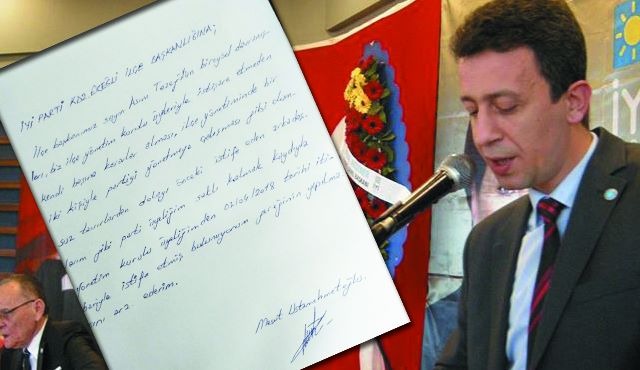 İYİ PARTİ KDZ EREĞLİ İLÇE BAŞKANLIĞINA;
İlçe başkanımız sayın Asım Tezeğit'in bireysel davranış-
ları, biz ilçe yönetim kurulu üyeleriyle istişare etmeden
kendi başına kararlar alması, ilçe yönetiminde bir
iki kişiyle partiyi yönetmeye çalışması gibi olum-
suz tavırlardan dolayı önceki istifa eden arkadaş-
larım gibi parti üyeliğim saklı kalmak kaydıyla
yönetim kurulu üyeliğimden 02/04/2018 tarihi iti-
bariyle istifa etmiş bulunuyorum gereğinin yapılma-
sını arz ederim.
Mesut Ustamehmetoğlu
İY